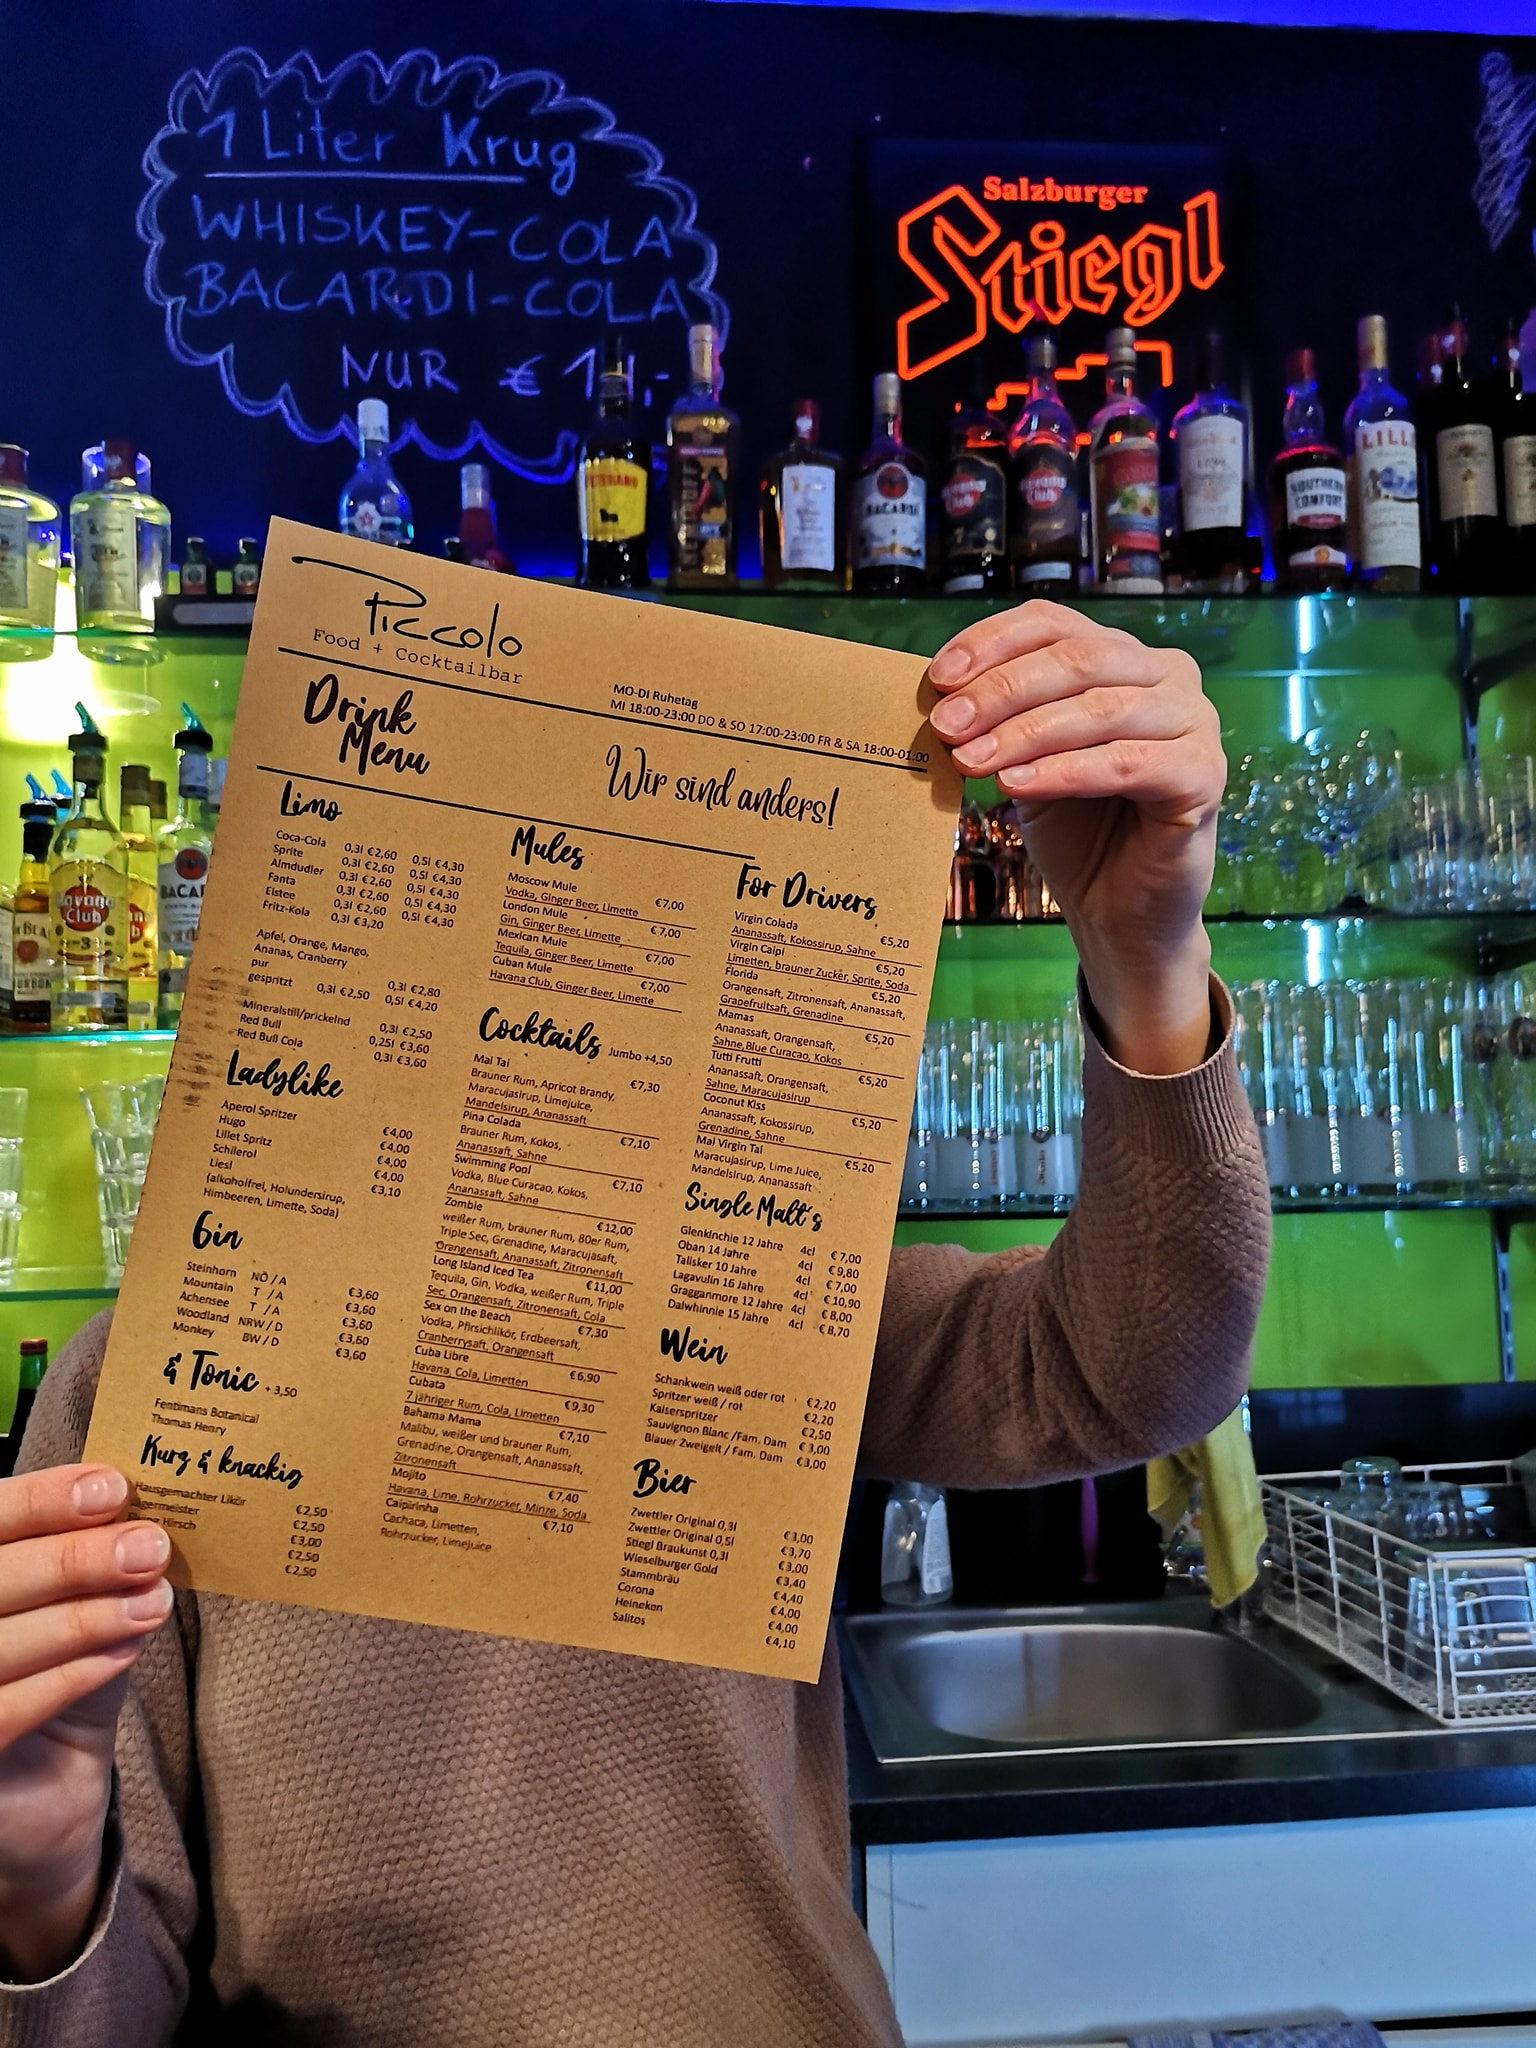 1 Liter Krug
WHISKEY-COLA
BACARDI-COLA
NUR €
Salzburger
Stiegl
BACARDI
Havana Club
Havana Club
SOUTHERN
COMFORT
Havana
Club
3
BACAR
Piccolo
Food + Cocktailbar
MO-DI Ruhetag
MI 18:00-23:00 DO & SO 17:00-23:00 FR & SA 18:00-01:00
Drink
Menu
Wir sind anders!
Limo
Coca-Cola 0,3l €2,60 0,5l €4,30
Sprite 0,3l €2,60 0,5l €4,30
Almdudler 0,3l €2,60 0,5l €4,30
Fanta 0,3l €2,60 0,5l €4,30
Eistee 0,3l €2,60 0,5l €4,30
Fritz-Kola 0,3l €3,20
Apfel, Orange, Mango,
Ananas, Cranberry
pur 0,3l €2,80
gespritzt 0,3l €2,50 0,5l €4,20
Mineralstill/prickelnd 0,3l €2,50
Red Bull 0,25l €3,60
Red Bull Cola 0,3l €3,60
Ladylike
Aperol Spritzer €4,00
Hugo €4,00
Lillet Spritz €4,00
Schilerol €4,00
Liesl €3,10
(alkoholfrei, Holundersirup,
Himbeeren, Limette, Soda)
Gin
Steinhorn NÖ / A €3,60
Mountain T / A €3,60
Achensee T / A €3,60
Woodland NRW / D €3,60
Monkey BW / D €3,60
& Tonic + 3,50
Fentimans Botanical
Thomas Henry
Kurz & knackig
Hausgemachter Likör €2,50
Jägermeister €2,50
Hirsch €3,00
€2,50
€2,50
Mules
Moscow Mule €7,00
Vodka, Ginger Beer, Limette
London Mule €7,00
Gin, Ginger Beer, Limette
Mexican Mule €7,00
Tequila, Ginger Beer, Limette
Cuban Mule €7,00
Havana Club, Ginger Beer, Limette
Cocktails Jumbo +4,50
Mai Tai €7,30
Brauner Rum, Apricot Brandy,
Maracujasirup, Limejuice,
Mandelsirup, Ananassaft
Pina Colada €7,10
Brauner Rum, Kokos,
Ananassaft, Sahne
Swimming Pool €7,10
Vodka, Blue Curacao, Kokos,
Ananassaft, Sahne
Zombie €12,00
weißer Rum, brauner Rum, 80er Rum,
Triple Sec, Grenadine, Maracujasaft,
Orangensaft, Ananassaft, Zitronensaft
Long Island Iced Tea €11,00
Tequila, Gin, Vodka, weißer Rum, Triple
Sec, Orangensaft, Zitronensaft, Cola
Sex on the Beach €7,30
Vodka, Pfirsichlikör, Erdbeersaft,
Cranberrysaft, Orangensaft
Cuba Libre €6,90
Havana, Cola, Limetten
Cubata €9,30
7 jähriger Rum, Cola, Limetten
Bahama Mama €7,10
Malibu, weißer und brauner Rum,
Grenadine, Orangensaft, Ananassaft,
Zitronensaft
Mojito €7,40
Havana, Lime, Rohrzucker, Minze, Soda
Caipirinha €7,10
Cachaca, Limetten,
Rohrzucker, Limejuice
For Drivers
Virgin Colada €5,20
Ananassaft, Kokossirup, Sahne
Virgin Caipi €5,20
Limetten, brauner Zucker, Sprite, Soda
Florida €5,20
Orangensaft, Zitronensaft, Ananassaft,
Grapefruitsaft, Grenadine
Mamas €5,20
Ananassaft, Orangensaft,
Sahne,Blue Curacao, Kokos
Tutti Frutti €5,20
Ananassaft, Orangensaft,
Sahne, Maracujasirup
Coconut Kiss €5,20
Ananassaft, Kokossirup,
Grenadine, Sahne
Mai Virgin Tai €5,20
Maracujasirup, Lime Juice,
Mandelsirup, Ananassaft
Single Malt's
Glenkinchie 12 Jahre 4cl € 7,00
Oban 14 Jahre 4cl € 9,80
Talisker 10 Jahre 4cl € 7,00
Lagavulin 16 Jahre 4cl € 10,90
Gragganmore 12 Jahre 4cl € 8,00
Dalwhinnie 15 Jahre 4cl € 8,70
Wein
Schankwein weiß oder rot €2,20
Spritzer weiß / rot €2,20
Kaiserspritzer €2,50
Sauvignon Blanc /Fam. Dam € 3,00
Blauer Zweigelt / Fam. Dam €3,00
Bier
Zwettler Original 0,3l €3,00
Zwettler Original 0,5l €3,70
Stiegl Braukunst 0,3l €3,00
Wieselburger Gold €3,40
Stammbräu €4,40
Corona €4,00
Heineken €4,00
Salitos €4,10